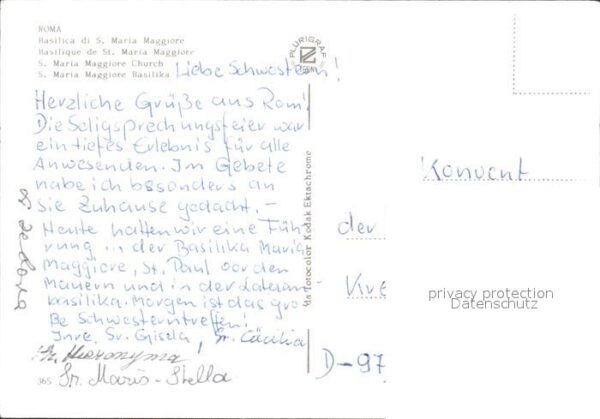 ROMA
Basilica di S. Maria Maggiore
Basilique de St. Maria Maggiore
S. Maria Maggiore Church
S. Maria Maggiore Basilika
PLURIGRAF
TERNI
Liebe Schwestern!
Herzliche Grüße aus Rom!
Die Seligsprechungsfeier war
ein tiefes Erlebnis für alle
Anwesenden. Im Gebete
habe ich besonders an
sie Zuhause gedacht. -
Heute hatten wir eine Füh-
rung in der Basilika Maria
Maggiore, St. Paul vor den
Mauern und in der Lateran-
basilika. Morgen ist das gro-
ße Schwesterntreffen!
Ihre, Sr. Gisela, Sr. Cäcilia
Sr. Hieronyma!
Sr. Maris-Stella
365
da Fotocolor Kodak Ektachrome
Konvent
der
Kre
D-97
privacy protection
Datenschutz